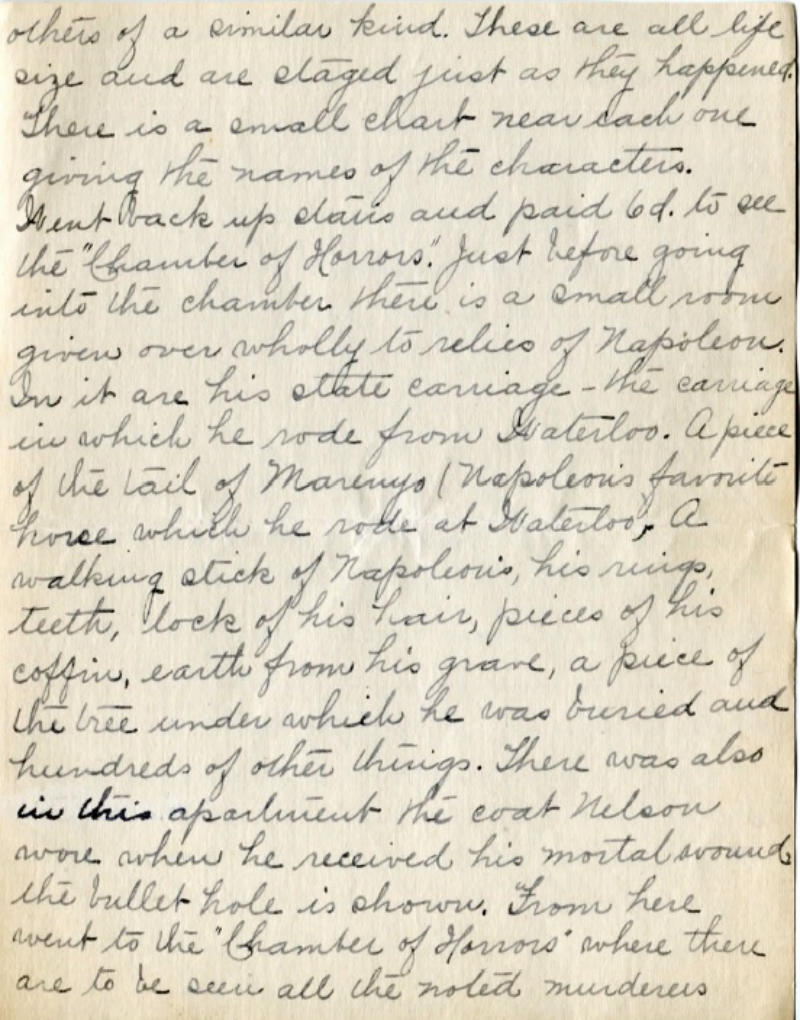 others of a similar kind. These are all life
size and are staged just as they happened.
There is a small chart near each one
giving the names of the characters.
Went back up stairs and paid 6d. to see
the "Chamber of Horrors". Just before going
into the chamber there is a small room
given over wholly to relics of Napoleon.
In it are his state carriage - the carriage
in which he rode from Waterloo. A piece
of the tail of Marengo (Napoleon's favorite
horse which he rode at Waterloo, A
walking stick of Napoleon's, his rings,
teeth, lock of his hair, pieces of his
coffin, earth from his grave, a piece of
the tree under which he was buried and
hundreds of other things. There was also
in this apartment the coat Nelson
wore when he received his mortal wound,
the bullet hole is shown. From here
went to the "Chamber of Horrors" where there
are to be seen all the noted murderers